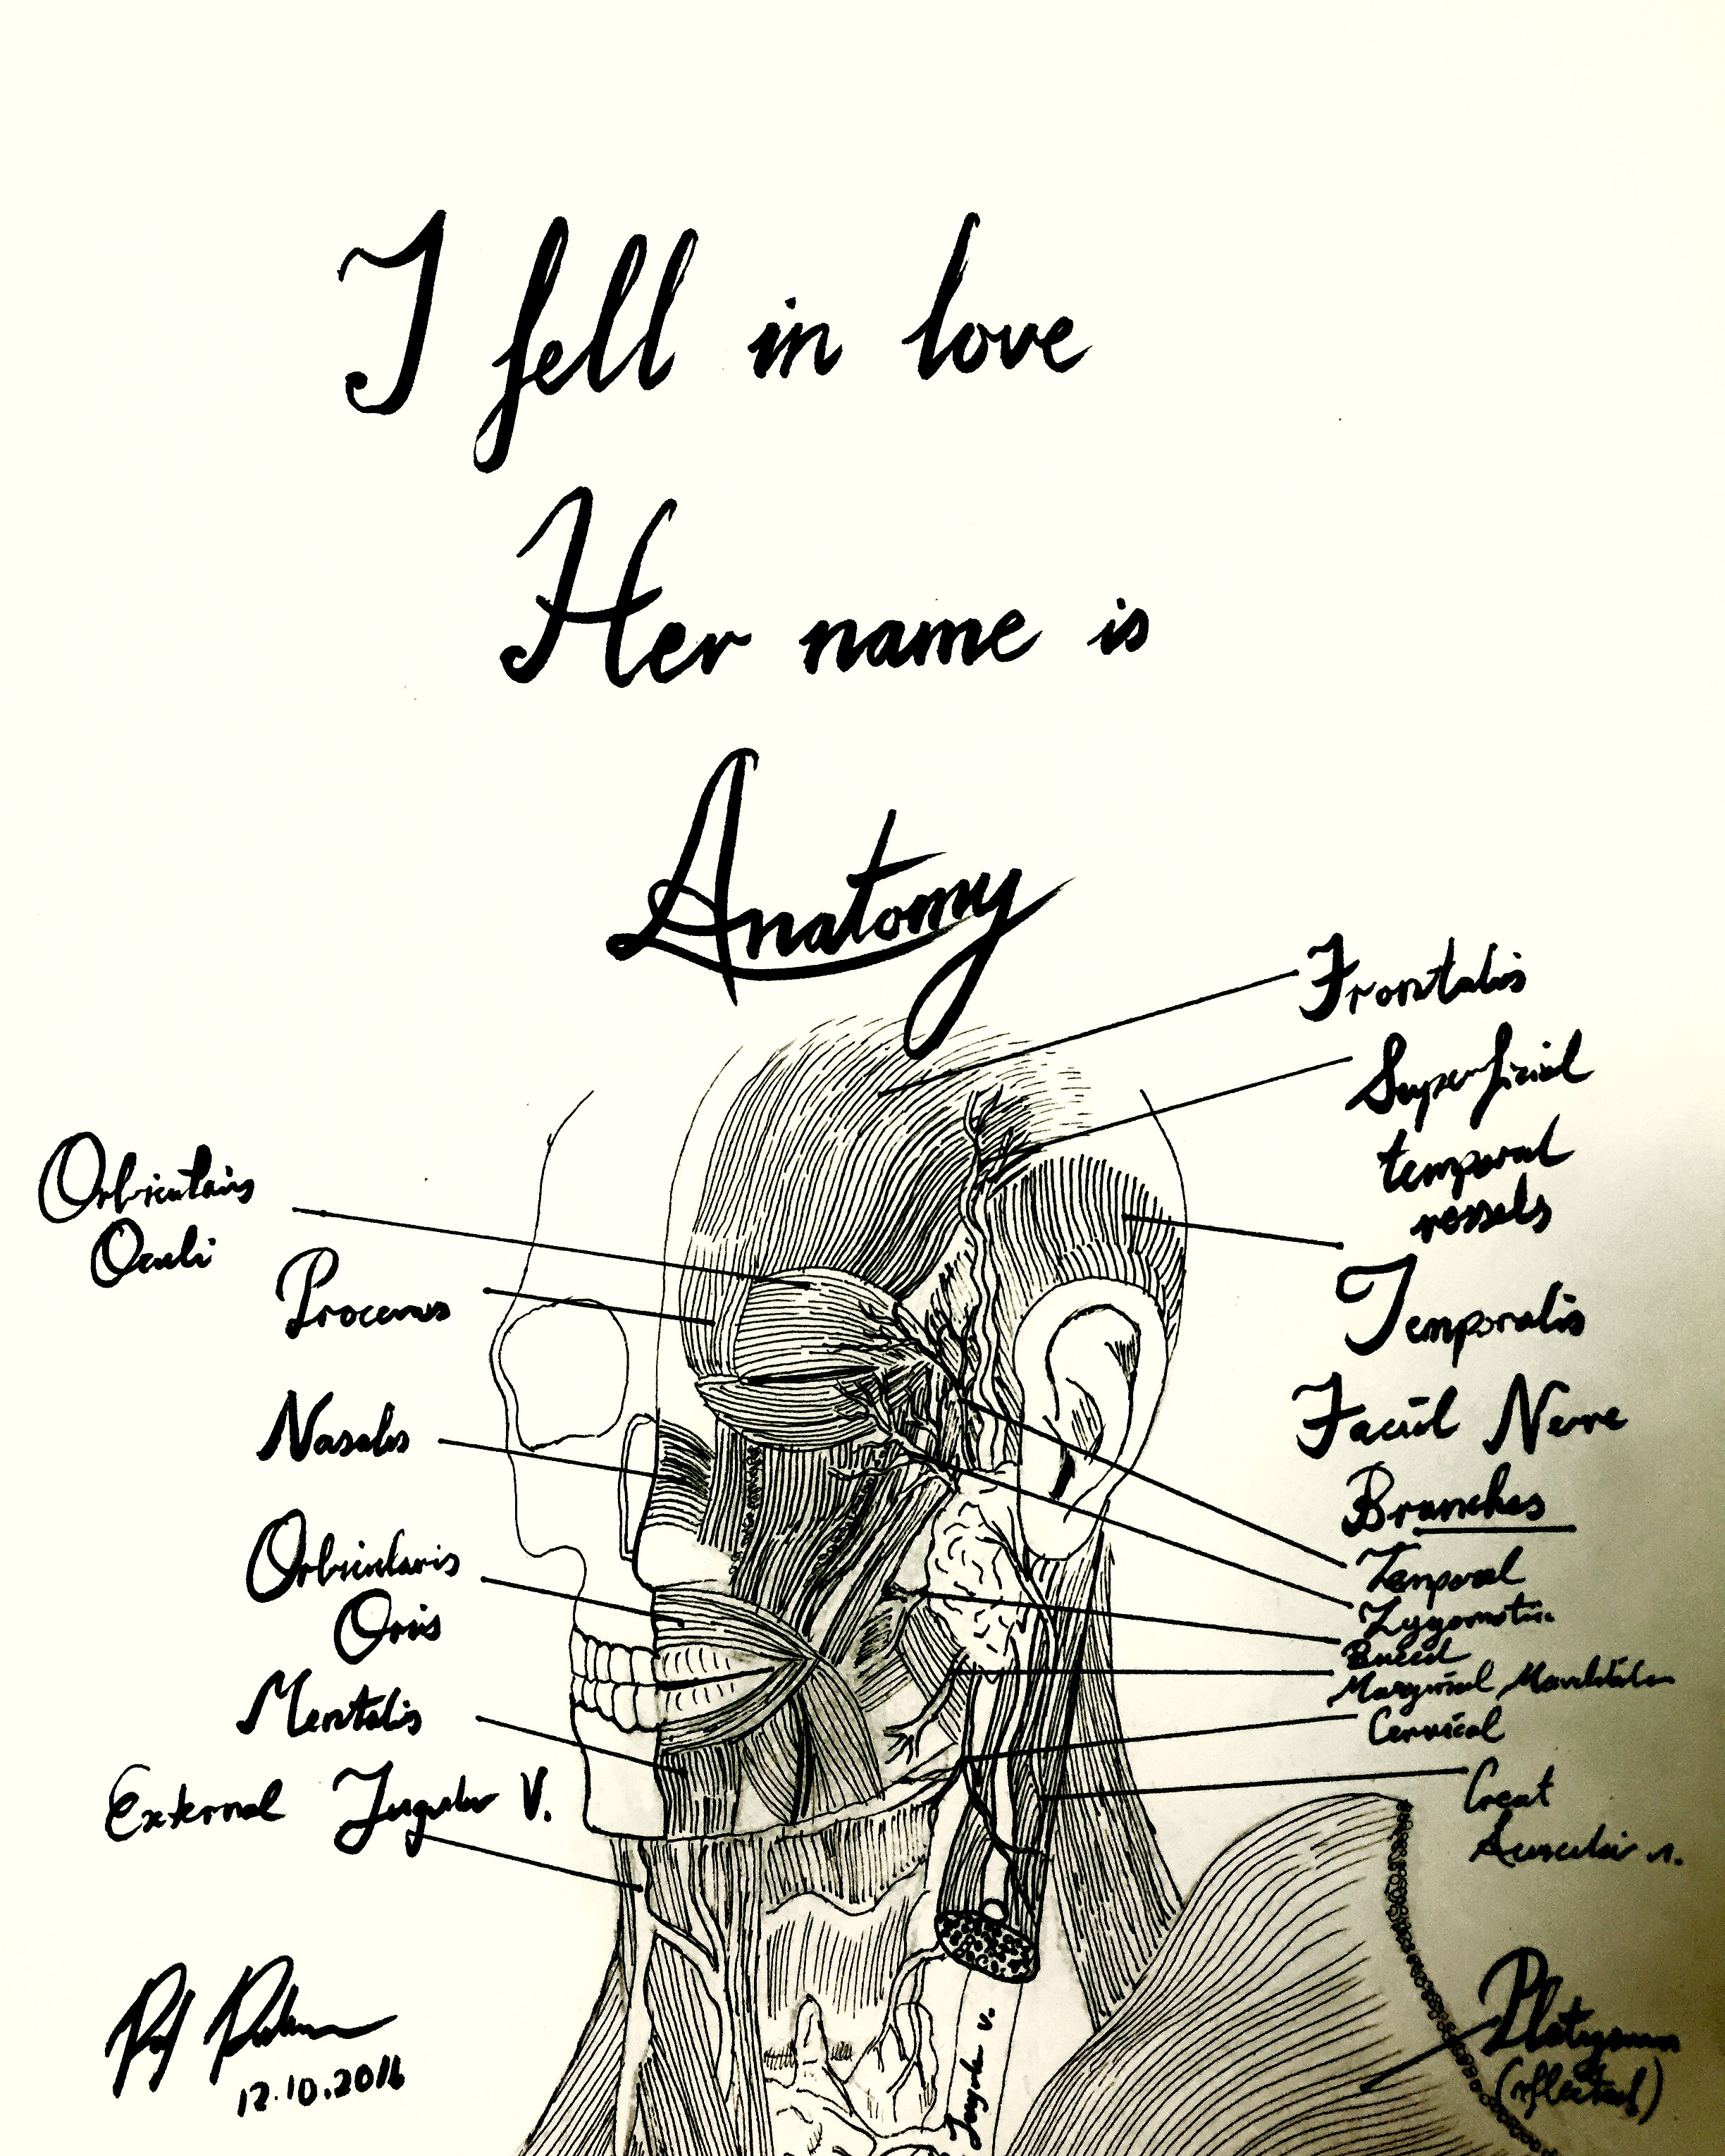 I fell in love
Her name is
Anatomy
Frontalis
Superficial
temporal
vessels
Temporalis
Facial Nerve
Branches
Temporal
Zygomatic
Buccal
Marginal Mandibular
Cervical
Great
Auricular n.
Platysma
(reflected)
Orbicularis
Oculi
Procerus
Nasalis
Orbicularis
Oris
Mentalis
External Jugular V.
12.10.2016
Jugular v.